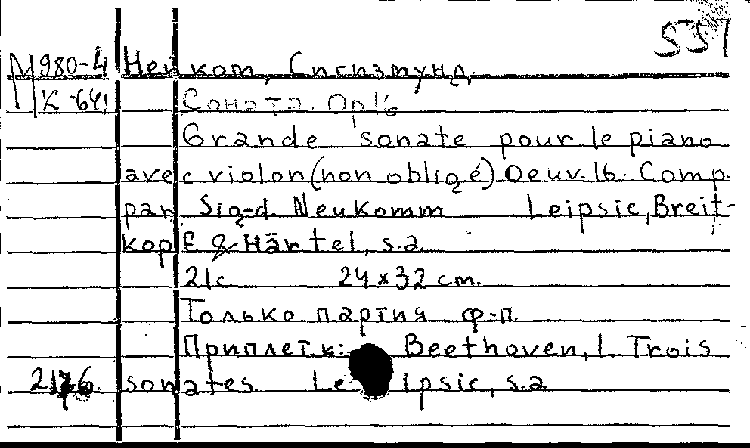 551
М980-4 Нейком, Сигизмунд
К-641 Соната. Op16
Grande sonate pour le piano
avec violon (non obligé) Oeuv.16. Comp.
par Sig-d. Neukomm Leipsic, Breit-
kopf & Härtel, s.a.
21с 24x32 cm.
Только партия ф-п.
Приплетк: Beethoven, L. Trois
sonates. Leipsic, s.a.